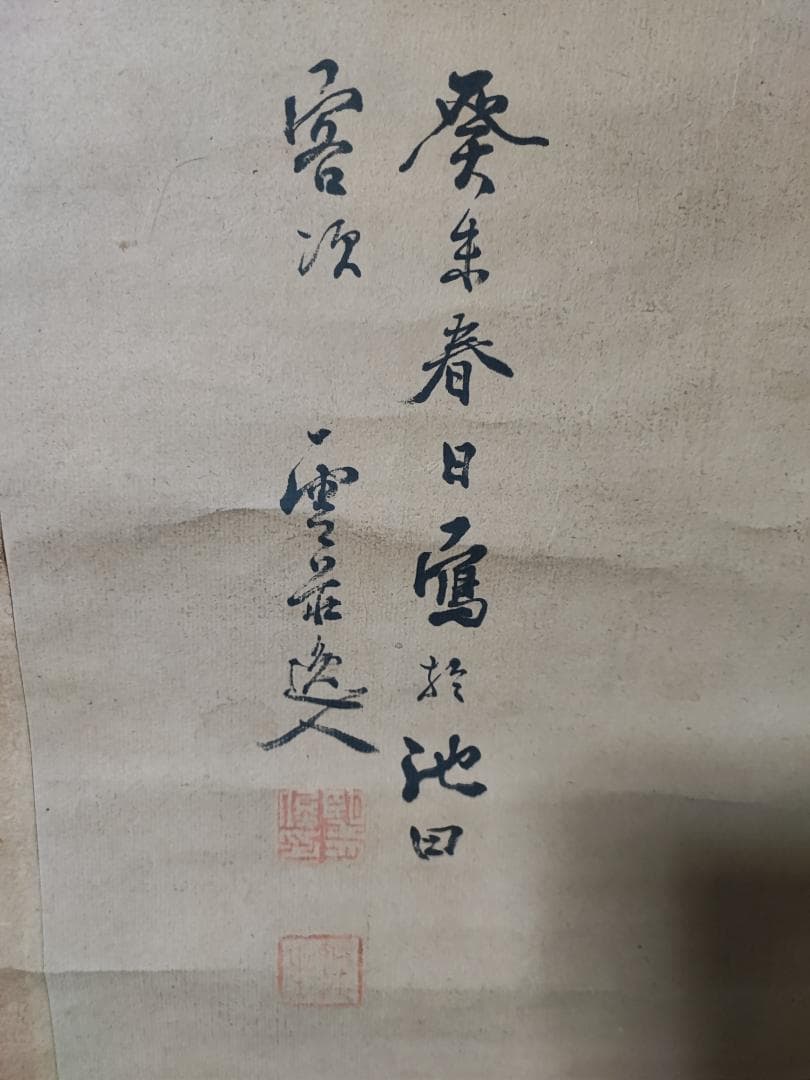 癸未春日寫於池田
客次　雲莊逸人